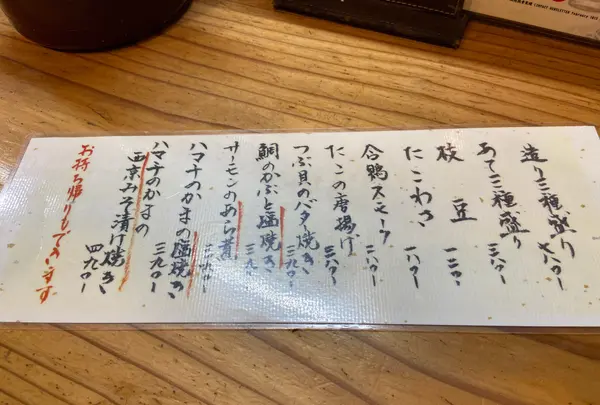 造り三種盛り 六八〇ー
あて三種盛り 三八〇ー
枝豆
たこわさ 一八〇ー
合鴨スモーク 二八〇ー
たこの唐揚げ 三八〇ー
つぶ貝のバター焼き 三九〇ー
鯛のかぶと塩焼き 三九〇ー
サーモンのあら煮
ハマチのかまの塩焼き 三九〇ー
ハマチのかまの
西京みそ漬け焼き 四九〇ー
お持ち帰りもできます